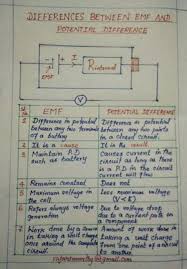 DIFFERENCES BETWEEN EMF AND
POTENTIAL DIFFERENCE
EMF
R internal
V
EMF
POTENTIAL DIFFERENCE
1 Difference in potential
between any two terminals
of a battery
Difference in potential
between any two points
in a closed circuit.
2 It is a cause
It is the result.
3 Maintain P.D
such as battery
Causes current in the
circuit as long as there
is a P.D in the circuit
current will flow
4 Remains constant
Does not
5 Maximum voltage in
the cell
Less maximum voltage
(V < E)
6 Refers always voltage
generation
Due to voltage drop
due to a current path on
a component
7 Work done by a
in taking a unit charge
once around the complete
circuit.
Amount of work done in
taking a unit charge
from one point of circuit
to another